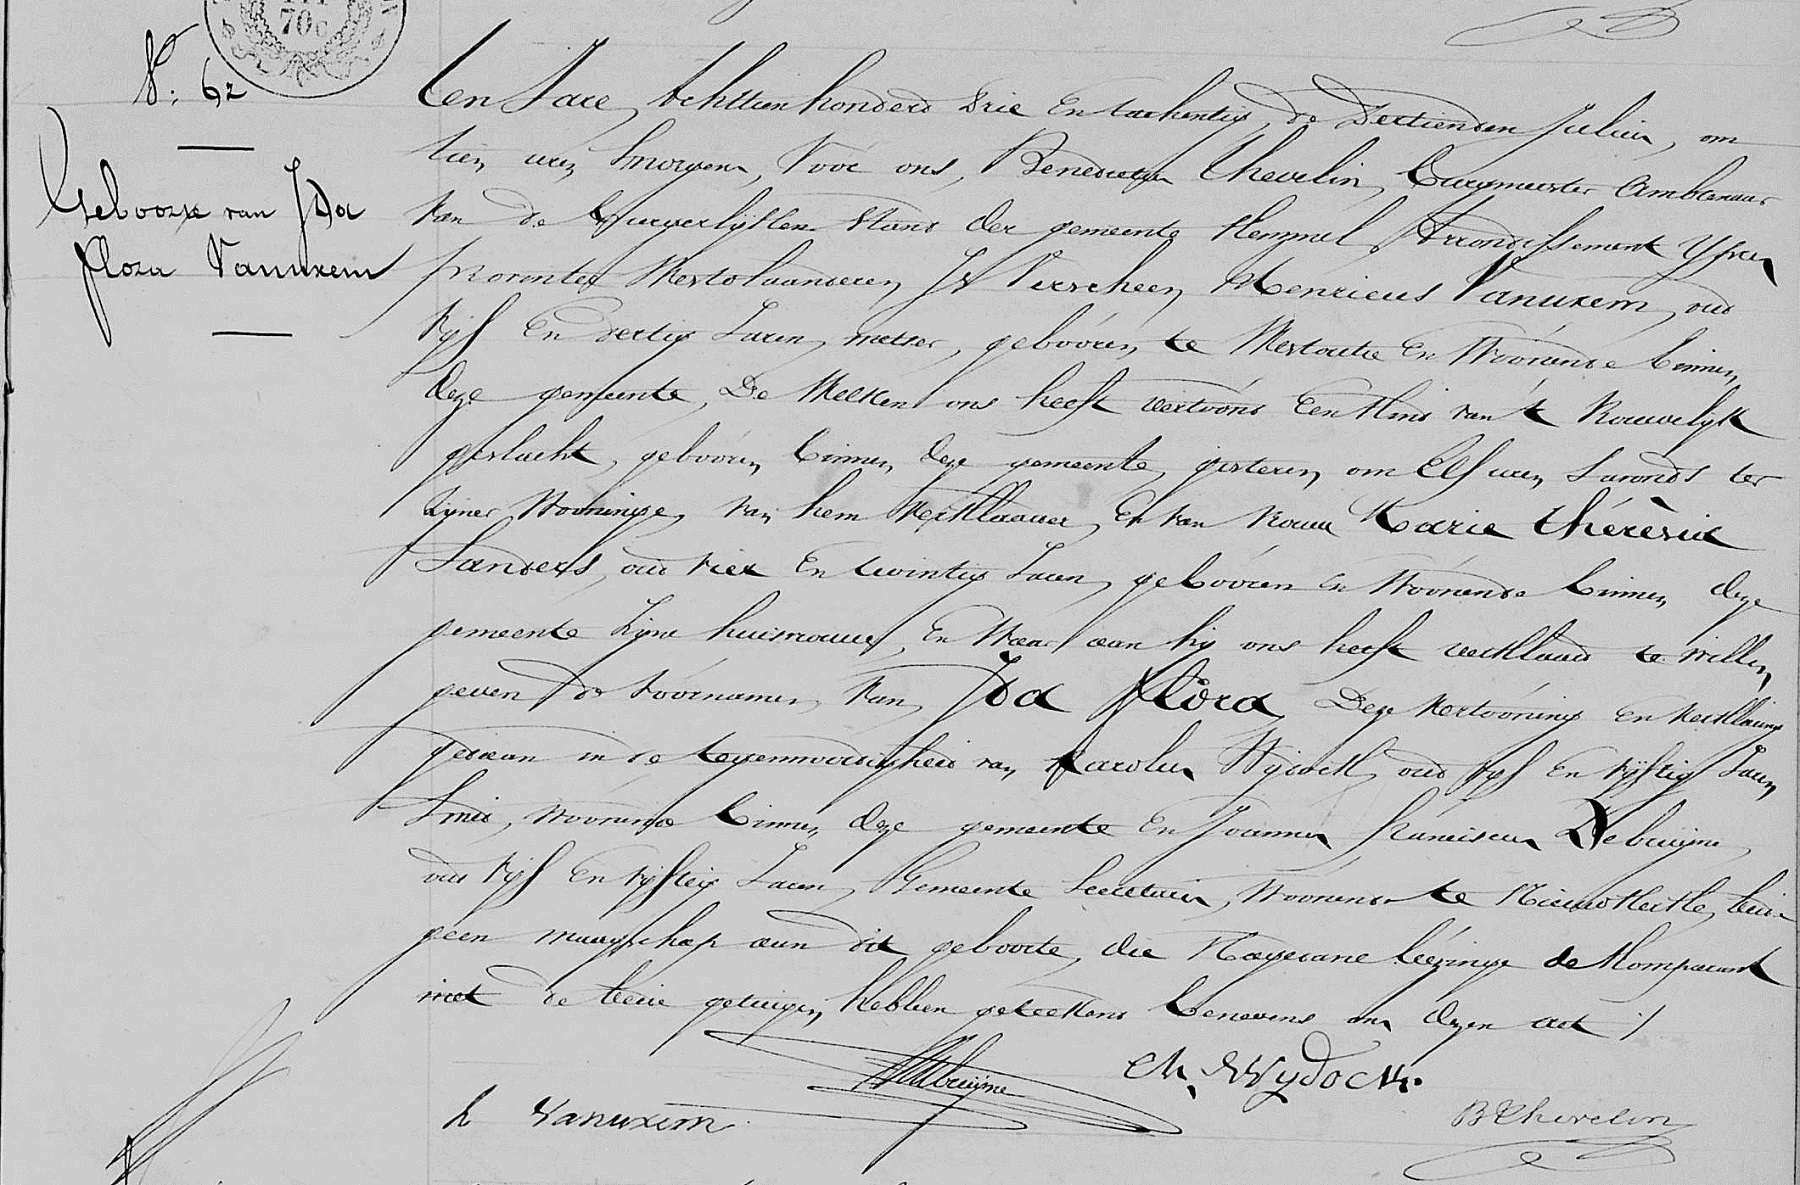 70c
N.: 62
Geboorte van Ida
Flora Vanuxem
Ten Jare Achttien honderd drie en tachentig, de dertienden Julius, om
tien uren smorgens, voor ons, Benedictus Thevelin, Burgmeester Ambtenaar
van de Burgerlijken Stand der gemeente Kemmel, Arrondissement Yper,
provintie Westvlaanderen, Is Verscheen, Henricus Vanuxem, oud
vijf en dertig Jaren, metser, gebooren te Westoutre en Woonende binnen
deze gemeente, De Welken ons heeft vertoond een Kind van 't Vrouwelijk
geslacht, gebooren binnen deze gemeente, gisteren, om Elf uren savonds ter
zijner Wooninge, van hem Verklaarder, en van vrouw Marie Thérèsia
Sanders, oud vier en twintig Jaren, gebooren en Woonende binnen deze
gemeente zijne huisvrouw, en Waar aan hij ons heeft verklaard te willen
geven de voornamen van Ida Flora, Deze vertooning en verklaring
gedaan in de tegenwoordigheid van Karolus Wydock, oud vijf en vijftig Jaren,
Smid, woonende binnen deze gemeente en Joannes Franciscus Debruyne
oud vijf en vijftig Jaren, Gemeente Secretaris, Woonende te Nieuwkerke, beide
geen maagschap aan dit geboorte, die Nagedane lezinge de Komparant
met de beide getuigen hebben geteekend benevens ons dezen act ./
Debruyne
Ch. Wydock.
h Vanuxem
B Thevelin